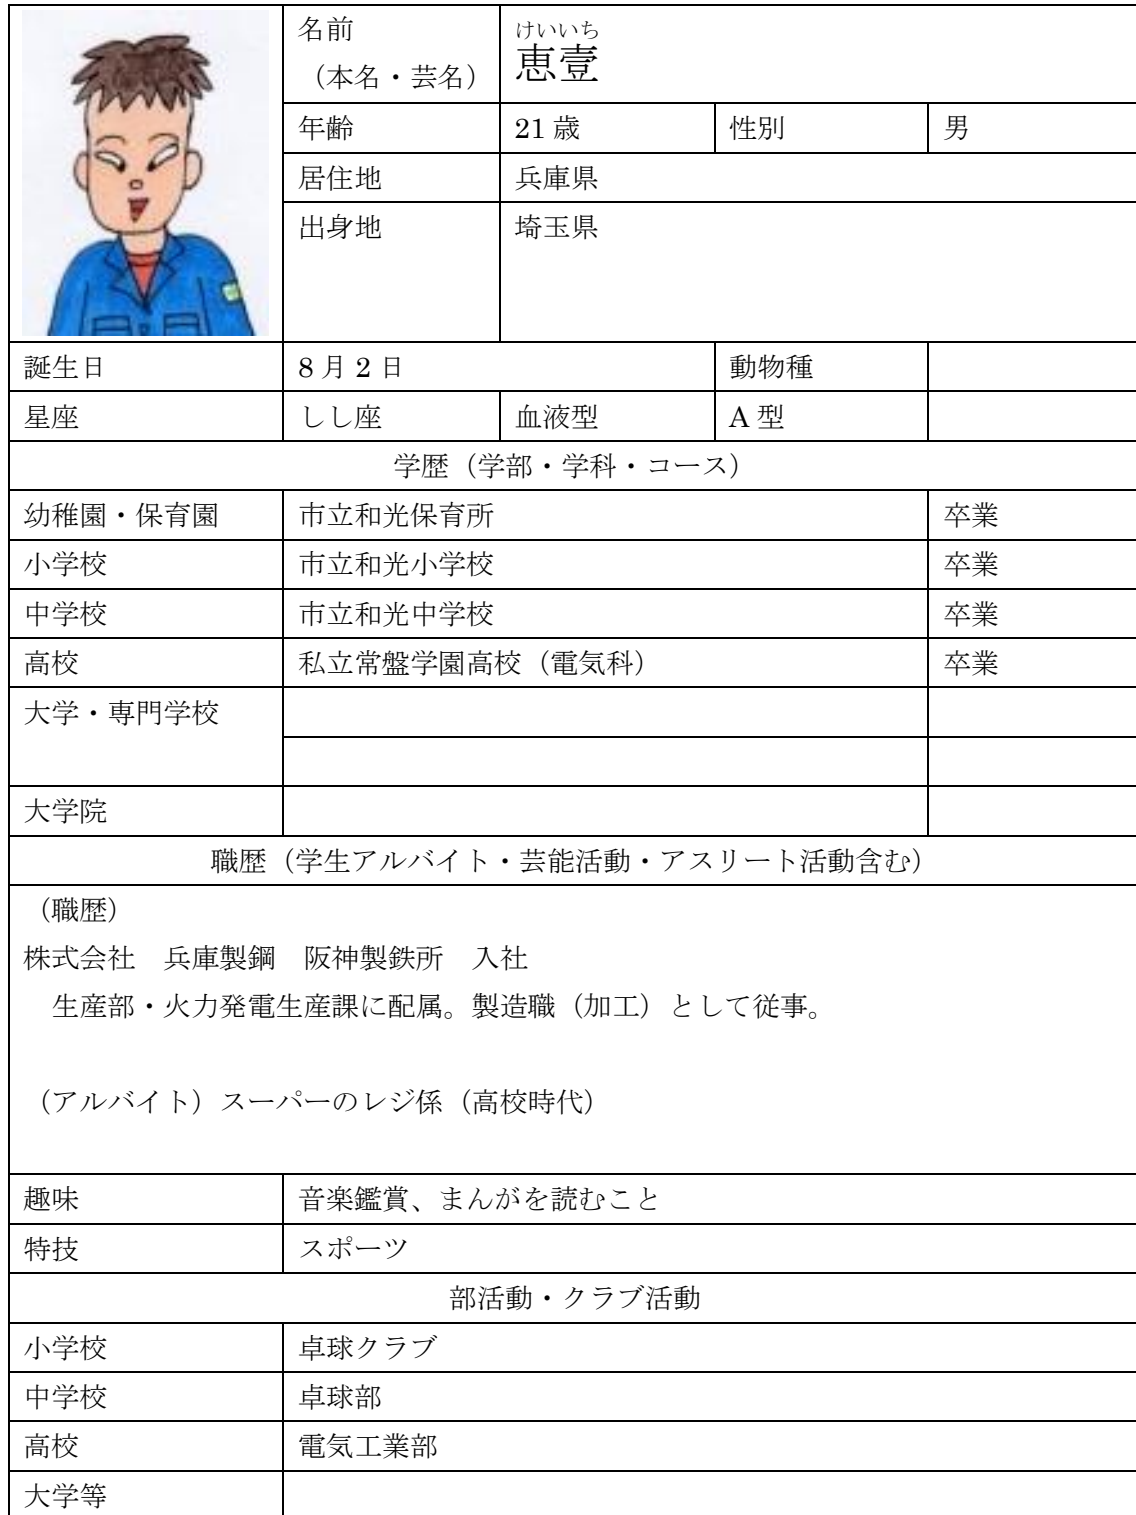 名前
（本名・芸名）
けいいち
恵壹
年齢 21 歳 性別 男
居住地 兵庫県
出身地 埼玉県
誕生日 8 月 2 日 動物種
星座 しし座 血液型 A 型
学歴（学部・学科・コース）
幼稚園・保育園 市立和光保育所 卒業
小学校 市立和光小学校 卒業
中学校 市立和光中学校 卒業
高校 私立常盤学園高校（電気科） 卒業
大学・専門学校
大学院
職歴（学生アルバイト・芸能活動・アスリート活動含む）
（職歴）
株式会社　兵庫製鋼　阪神製鉄所　入社
生産部・火力発電生産課に配属。製造職（加工）として従事。
（アルバイト）スーパーのレジ係（高校時代）
趣味 音楽鑑賞、まんがを読むこと
特技 スポーツ
部活動・クラブ活動
小学校 卓球クラブ
中学校 卓球部
高校 電気工業部
大学等